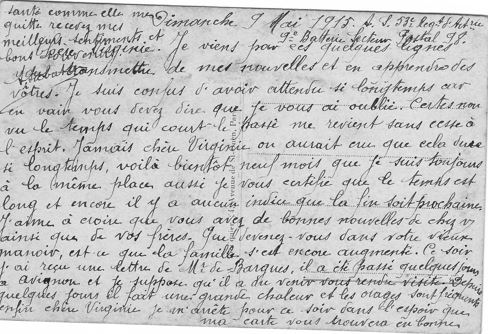 Dimanche 9 Mai 1915. A. S. 53e Regt d'Art
9e Batterie Secteur Postal 98.
Chère Virginie. Je viens par ces quelques lignes
transmettre de mes nouvelles et en apprendre des
vôtres. Je suis confus d'avoir attendu si longtemps car
en vain vous devez dire que je vous ai oublié. Certes non
vu le temps qui court le passé me revient sans cesse à
l'esprit. Jamais chère Virginie on aurait cru que cela dure
si longtemps, voilà bientôt neuf mois que je suis toujours
à la même place aussi je vous certifie que le temps est
long et encore il y a aucun indice que la fin soit prochaine.
J'aime à croire que vous avez de bonnes nouvelles de chez v
ainsi que de vos frères. Que devenez-vous dans votre vieux
manoir, est ce que la famille s'est encore augmenté. Ce soir
j'ai reçu une lettre de Mr de Bargues, il a été passé quelques jours
a avignon et je suppose qu'il a du venir vous rendre visite. Depuis
quelques jours il fait une grande chaleur et les orages sont fréquents
enfin chère Virginie je m'arrête pour ce soir dans l'espoir que
ma carte vous trouvera en bonne
santé comme elle me
quitte recevez mes
meilleurs sentiments et
bons souvenirs